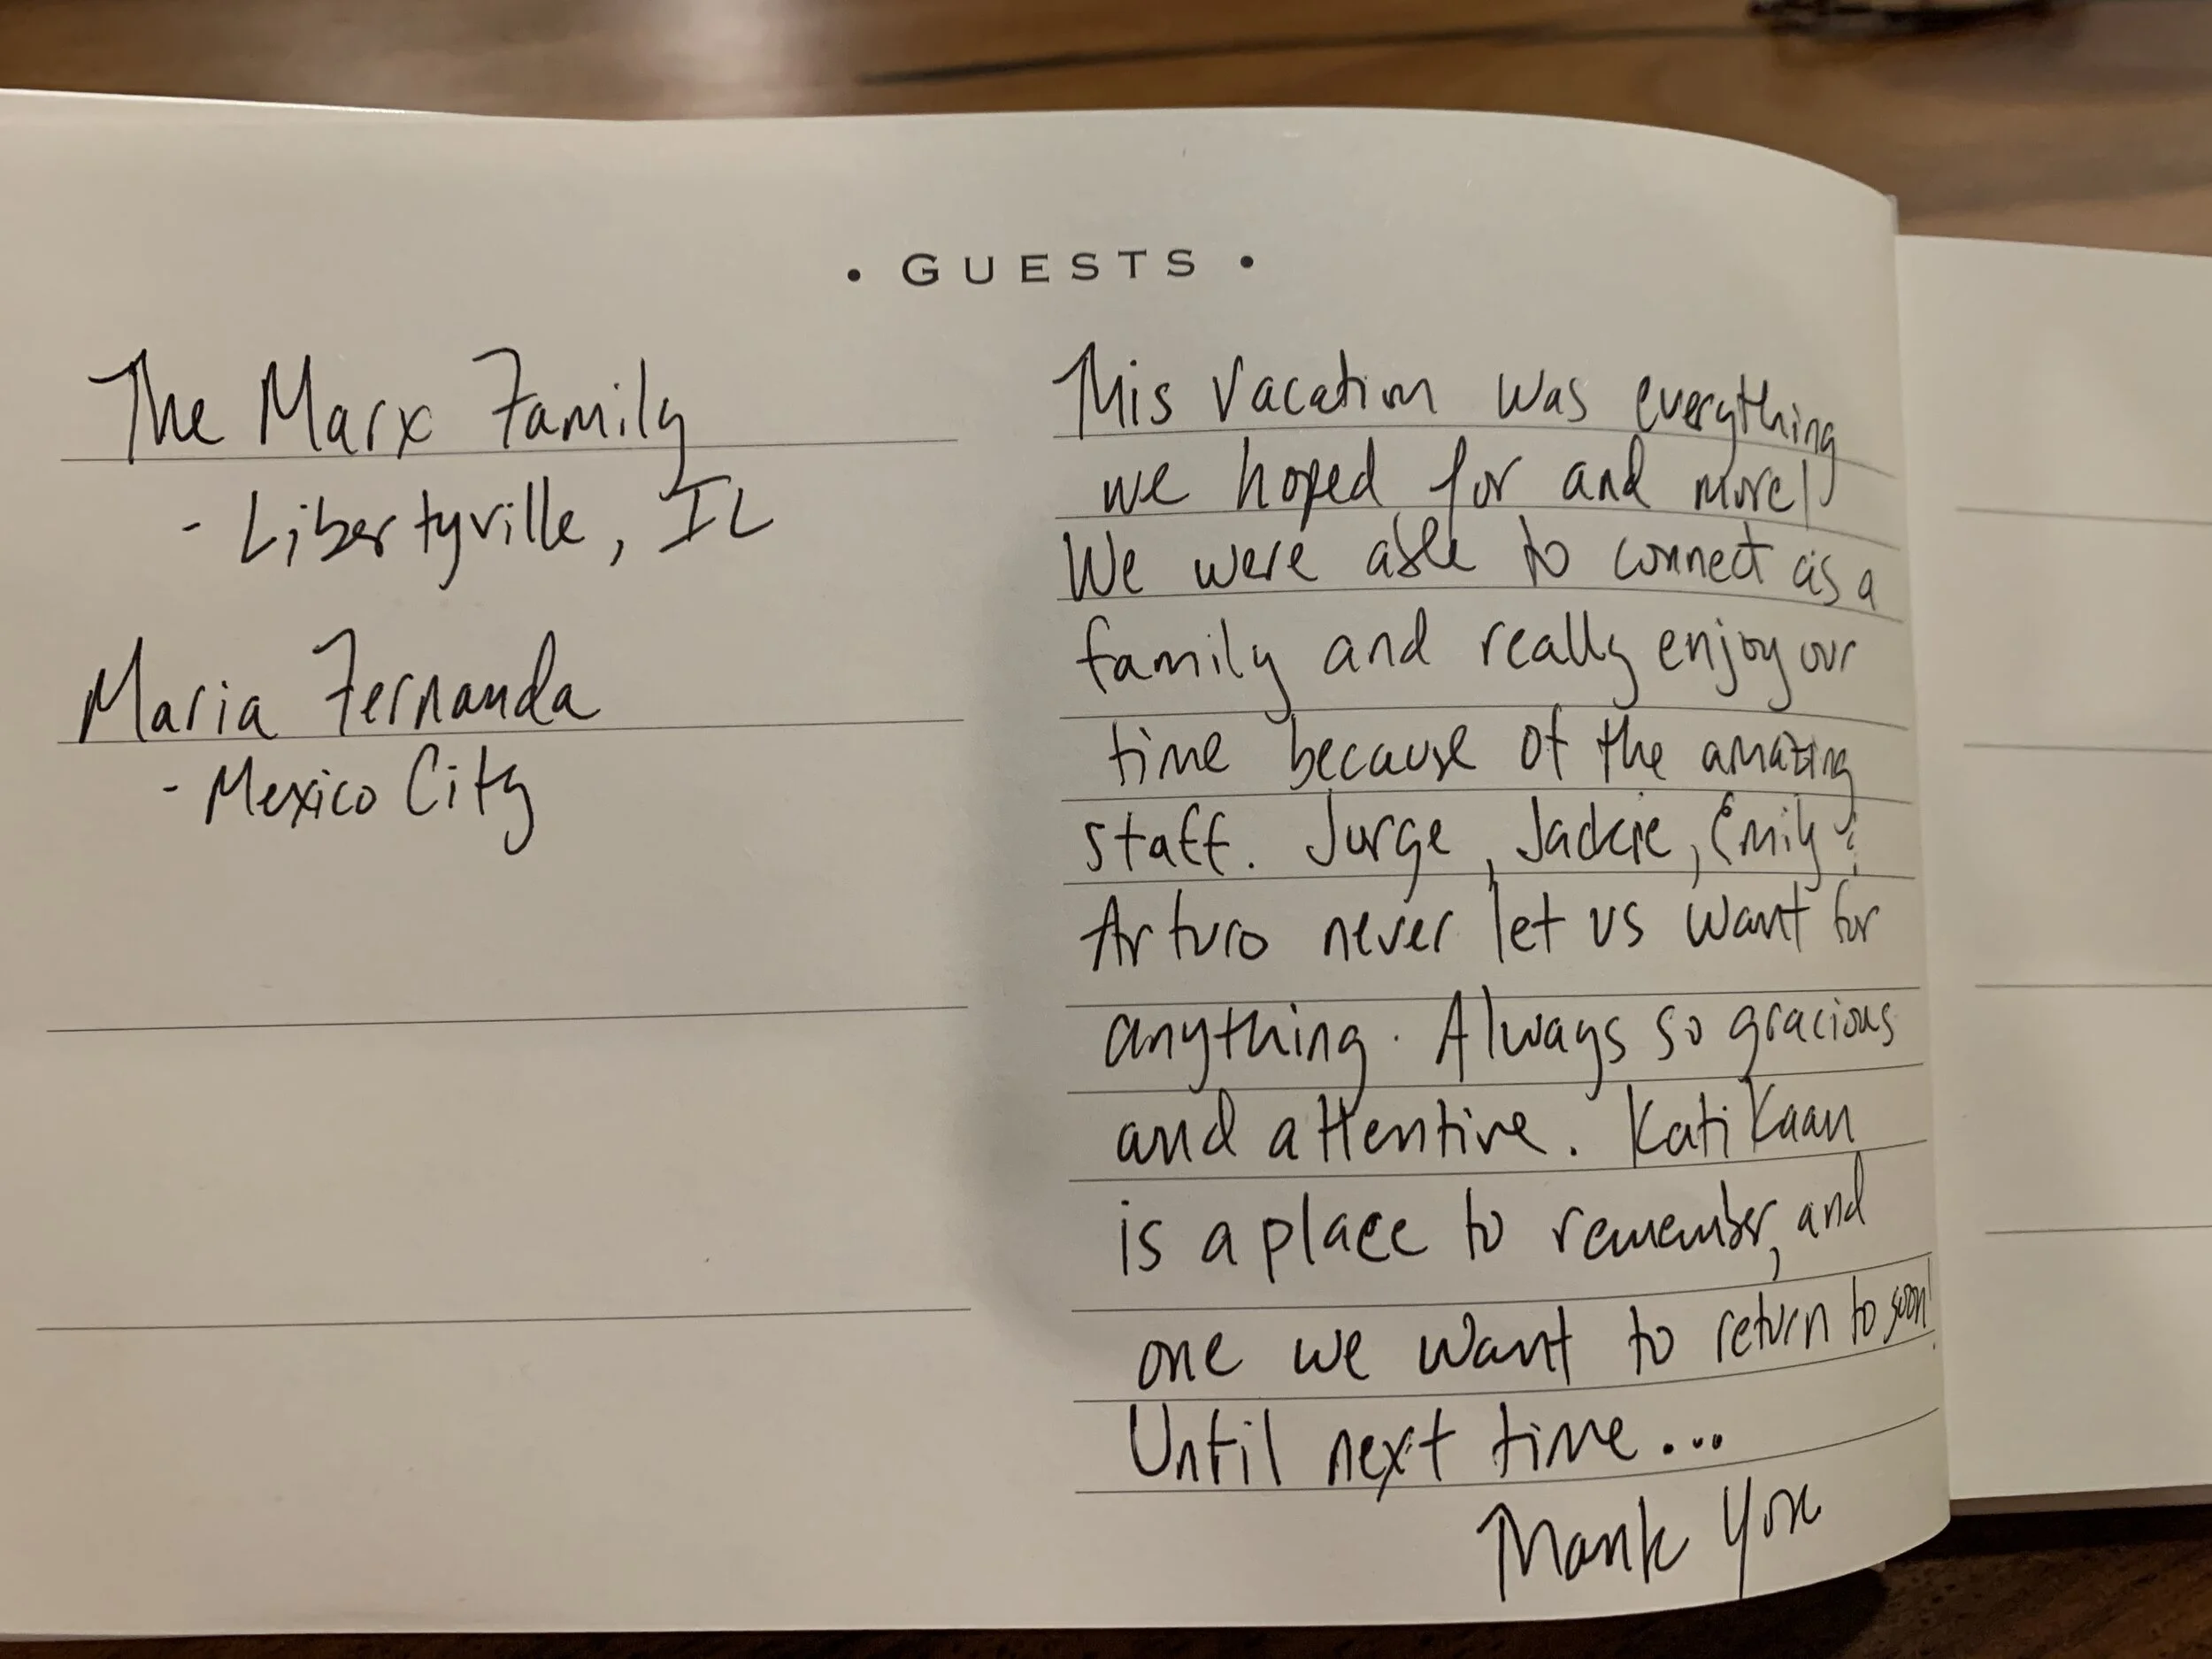 • GUESTS •
The Marx Family
- Libertyville, IL
Maria Fernanda
- Mexico City
This vacation was everything
we hoped for and more!
We were able to connect as a
family and really enjoy our
time because of the amazing
staff. Jorge, Jackie, Emily &
Arturo never let us want for
anything. Always so gracious
and attentive. Kati Kaan
is a place to remember, and
one we want to return to soon!
Until next time...
Thank You